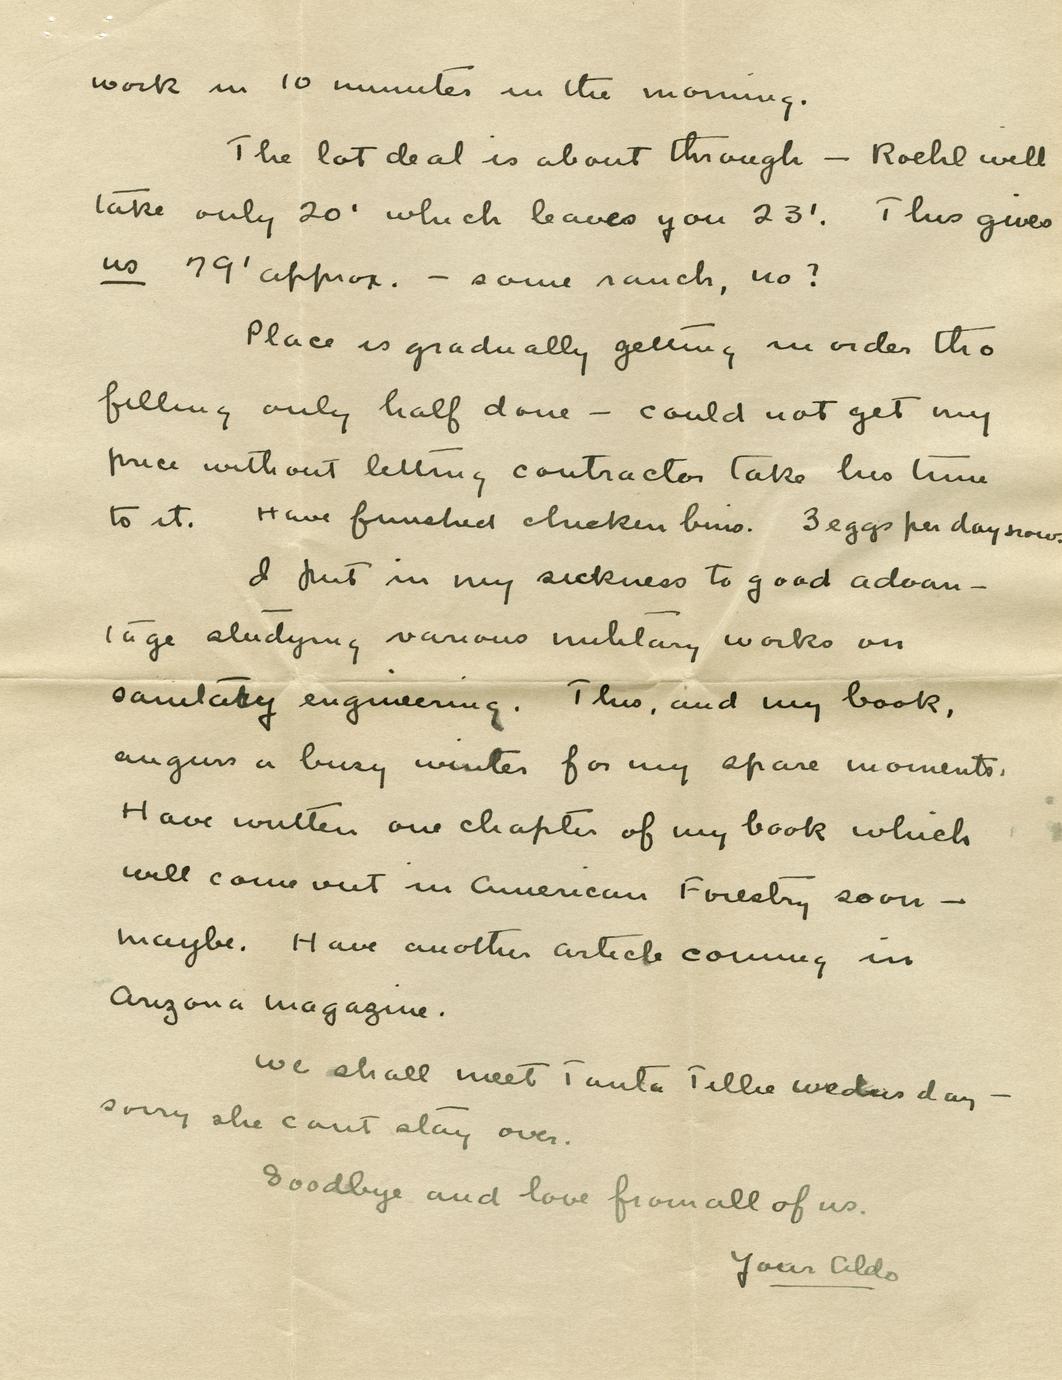 work in 10 minutes in the morning.
The lot deal is about through — Roehl will
take only 20' which leaves you 23'. This gives
us 79' approx. — some ranch, no?
Place is gradually getting in order tho
filling only half done — could not get my
price without letting contractor take his time
to it. Have finished chicken bins. 3 eggs per day now.
I put in my sickness to good advan-
tage studying various military works on
sanitary engineering. This, and my book,
augurs a busy winter for my spare moments.
Have written one chapter of my book which
will come out in American Forestry soon —
maybe. Have another article coming in
Arizona magazine.
We shall meet Tanta Tillie Wednesday —
sorry she cant stay over.
Goodbye and love from all of us.
Your Aldo